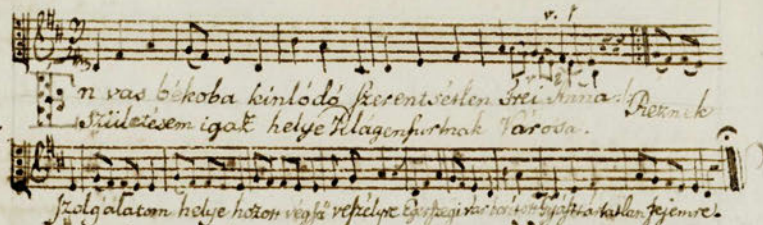 En vas békoba kinlódó szerentsétlen Frei Anna. Reznek
Születesem igaz helye Klágenfurtnak Városa.
szolgálatom helye hozott végső veszélyre Egerszegi vár borított gyászt ártatlan fejemre.